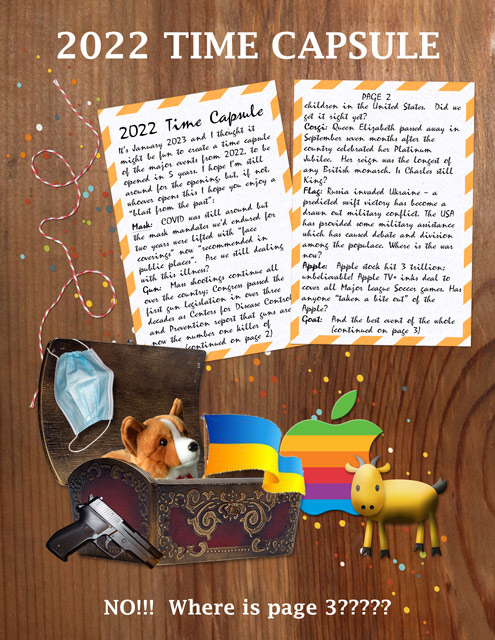 2022 TIME CAPSULE
2022 Time Capsule
It's January 2023 and I thought it
might be fun to create a time capsule
of the major events from 2022, to be
opened in 5 years. I hope I'm still
around for the opening, but, if not,
whoever opens this I hope you enjoy a
"blast from the past":
Mask: COVID was still around but
the mask mandates we'd endured for
two years were lifted with "face
coverings" now "recommended in
public places". Are we still dealing
with this illness?
Gun: Mass shootings continue all
over the country; Congress passed the
first gun legislation in over three
decades as Centers for Disease Control
and Prevention report that guns are
now the number one killer of
(continued on page 2)
PAGE 2
children in the United States. Did we
get it right yet?
Corgi: Queen Elizabeth passed away in
September seven months after the
country celebrated her Platinum
Jubilee. Her reign was the longest of
any British monarch. Is Charles still
King?
Flag: Russia invaded Ukraine - a
predicted swift victory has become a
drawn out military conflict. The USA
has provided some military assistance
which has caused debate and division
among the populace. Where is the war
now?
Apple: Apple stock hit 3 trillion;
unbelievable! Apple TV+ inks deal to
cover all Major League Soccer games. Has
anyone "taken a bite out" of the
Apple?
Goat: And the best event of the whole
(continued on page 3)
NO!!! Where is page 3?????